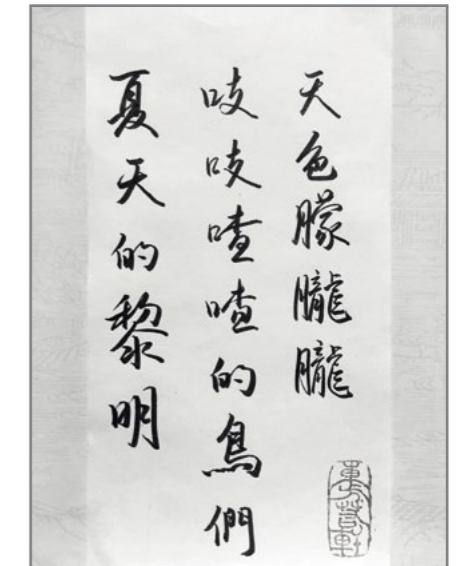 天色朦朧朧
吱吱喳喳的鳥們
夏天的黎明